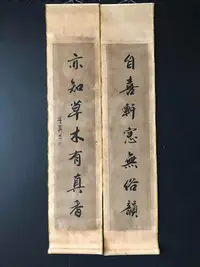 自喜軒窗無俗韻
亦知草木有真香